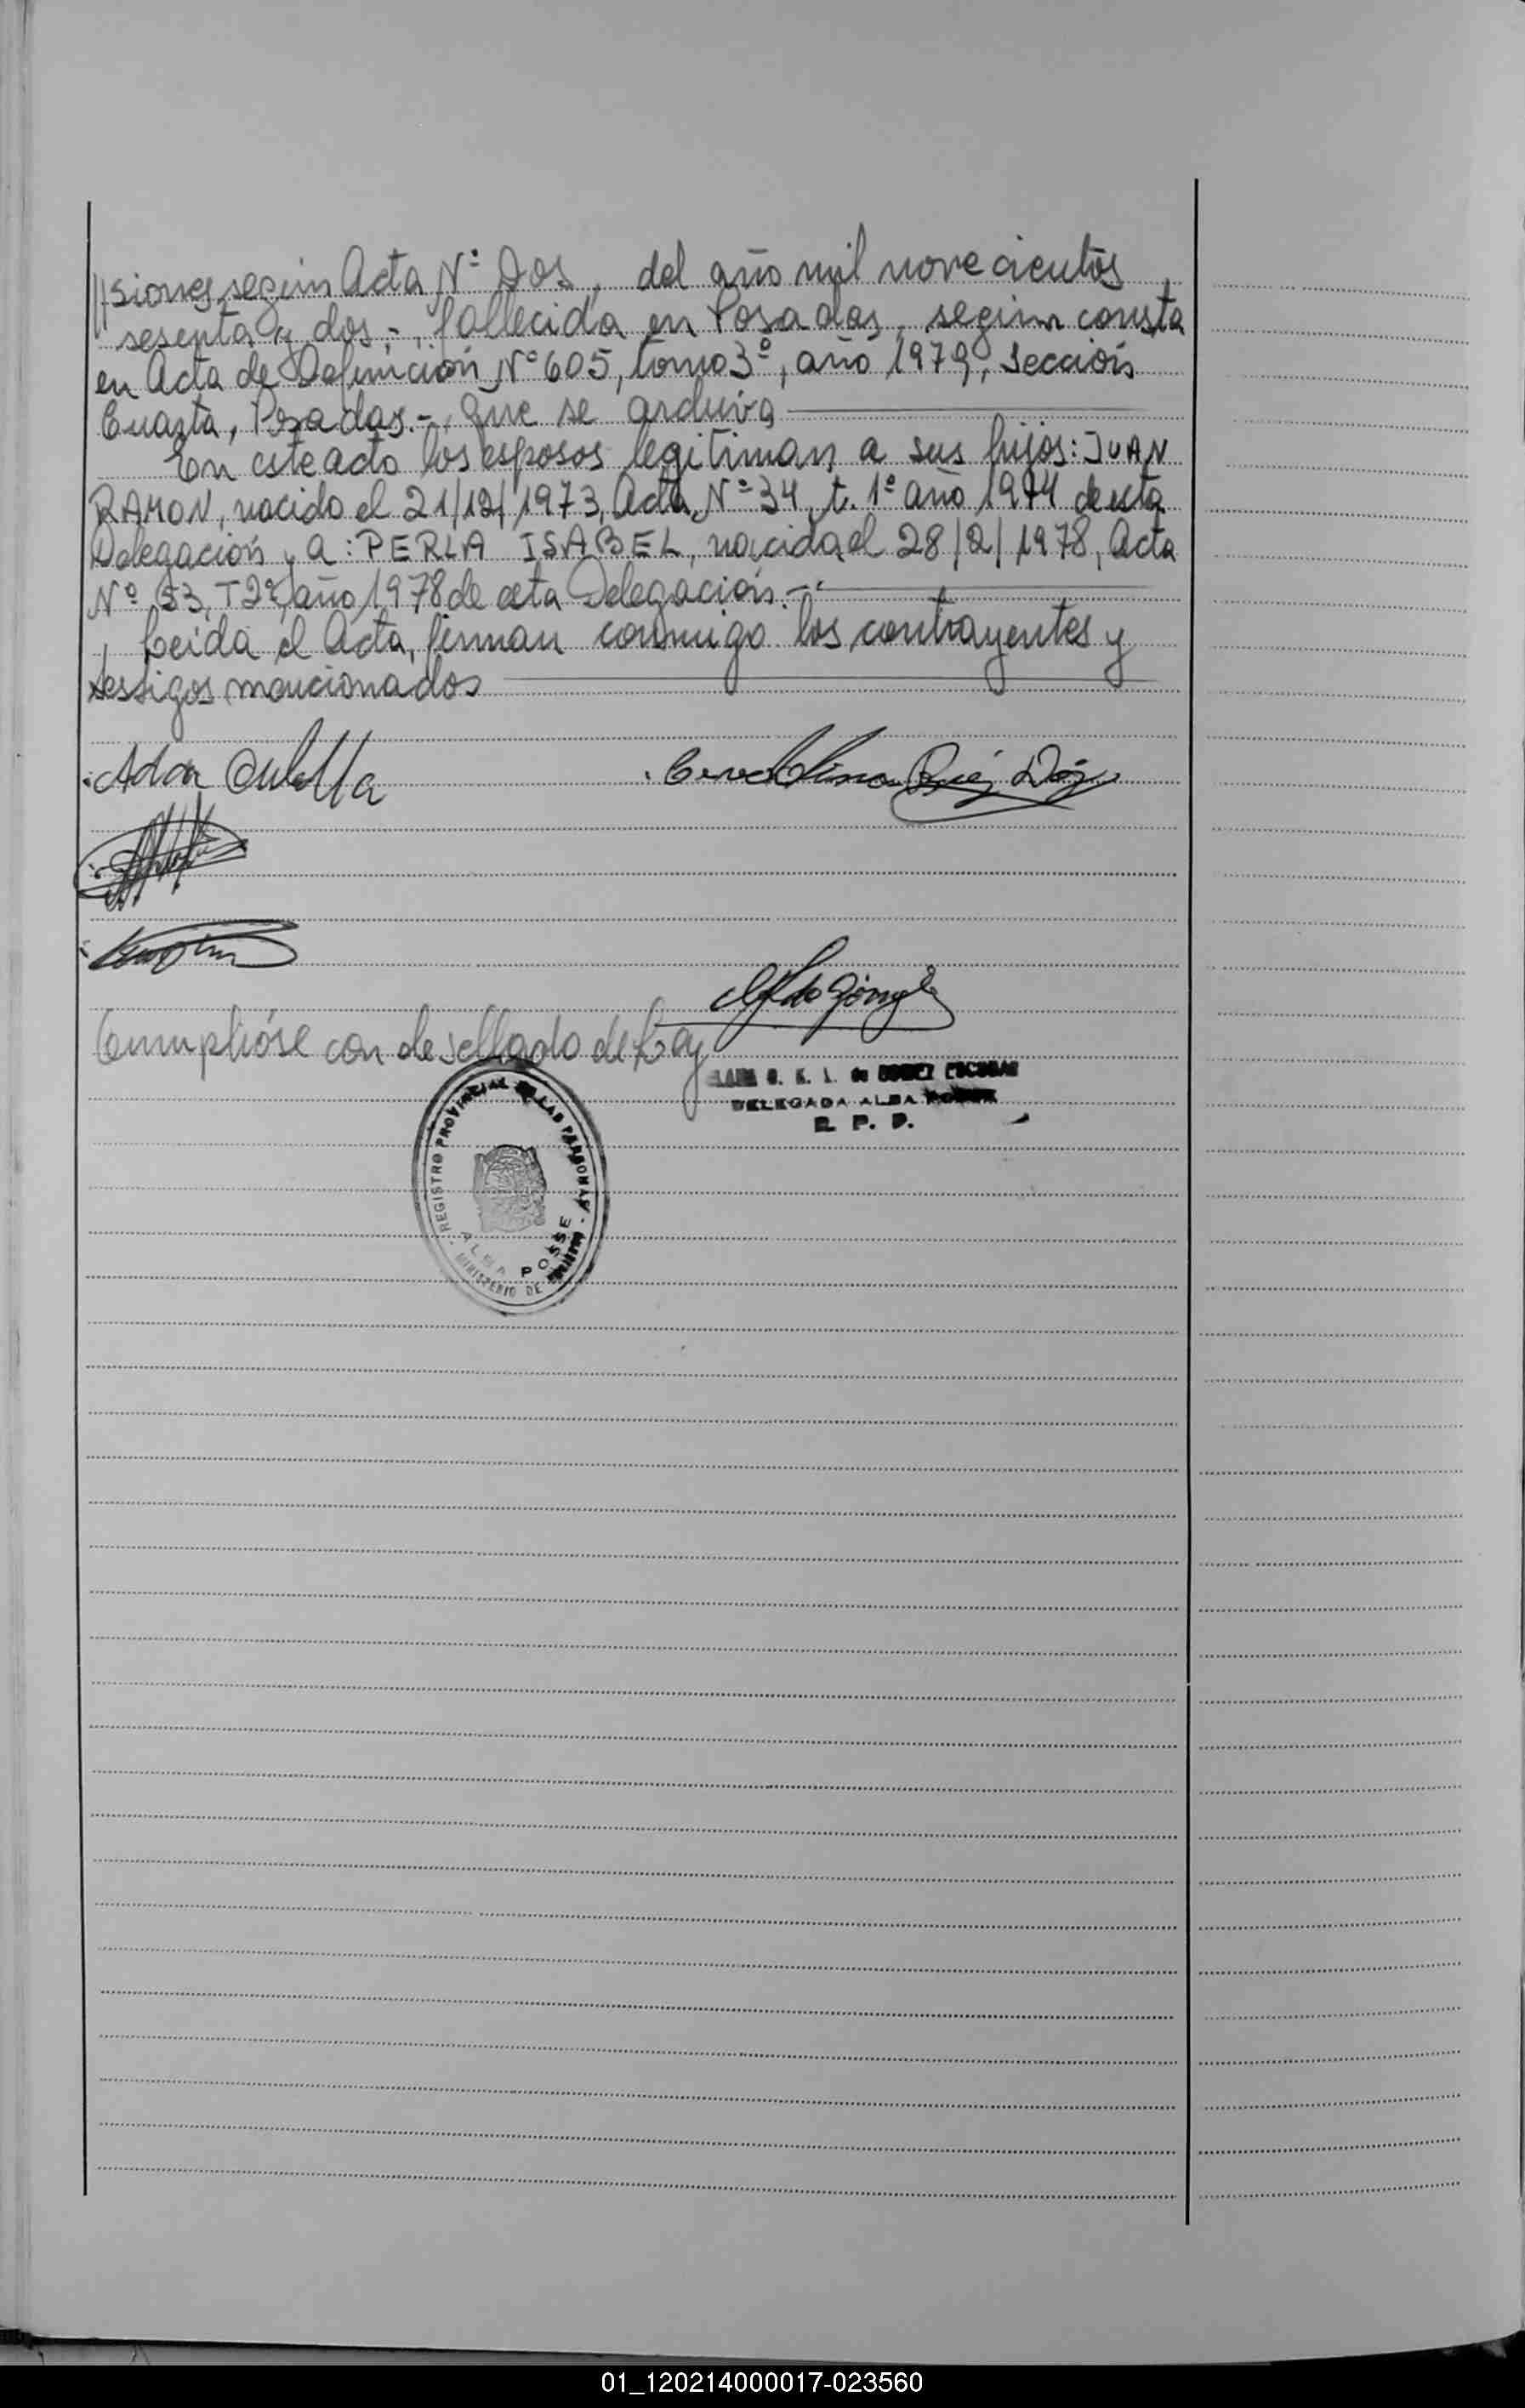 //siones, según Acta Nº Dos, del año mil novecientos
sesenta y dos.-, fallecida en Posadas, según consta
en Acta de Defunción Nº 605, tomo 3º, año 1979, Sección
Cuarta, Posadas.- Que se archiva
En este acto los esposos legitiman a sus hijos: JUAN
RAMON, nacido el 21/12/1973, Acta Nº 34, t. 1º año 1974 de esta
Delegación y a: PERLA ISABEL, nacida el 28/2/1978, Acta
Nº 53, T 2º, año 1978 de esta Delegación.-
Leida el Acta, firman conmigo los contrayentes y
testigos mencionados
Adan
Cumplióse con el sellado de Ley
DELEGADA ALBA POSSE
R. P. P.
REGISTRO PROVINCIAL DE LAS PERSONAS
ALBA POSSE
MINISTERIO DE
01_120214000017-023560